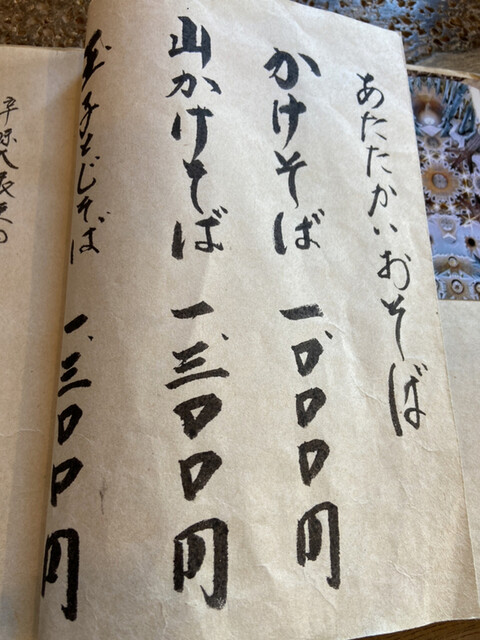 あたたかいおそば
かけそば 一、〇〇〇円
山かけそば 一、三〇〇円
玉子とじそば 一、三〇〇円